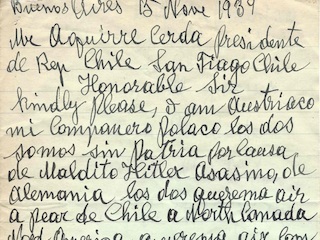 Buenos Aires 15 Nove 1939
Mr Aguirre Cerda Presidente
de Rep Chile San Tiago Chile
Honorable Sir
kindly Please, I am Austriaco
mi Companero Polaco los dos
somos sin Patria por causa
de Maldito Hitler Asasino, de
Alemania los dos queremo air
a pear de Chile a North Canada